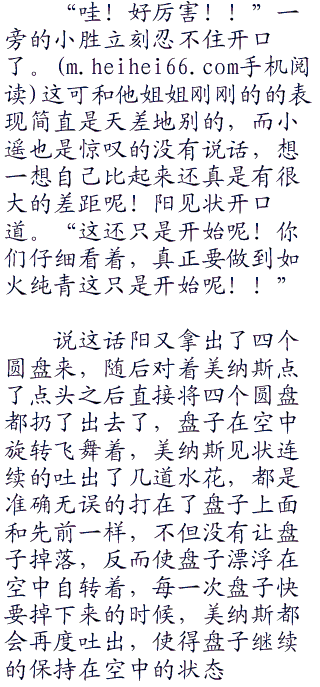 “哇！好厉害！！”一
旁的小胜立刻忍不住开口
了。(m.heihei66.com手机阅
读)这可和他姐姐刚刚的的表
现简直是天差地别的，而小
遥也是惊叹的没有说话，想
一想自己比起来还真是有很
大的差距呢！阳见状开口
道。“这还只是开始呢！你
们仔细看着，真正要做到如
火纯青这只是开始呢！！”
说这话阳又拿出了四个
圆盘来，随后对着美纳斯点
了点头之后直接将四个圆盘
都扔了出去了，盘子在空中
旋转飞舞着，美纳斯见状连
续的吐出了几道水花，都是
准确无误的打在了盘子上面
和先前一样，不但没有让盘
子掉落，反而使盘子漂浮在
空中自转着，每一次盘子快
要掉下来的时候，美纳斯都
会再度吐出，使得盘子继续
的保持在空中的状态